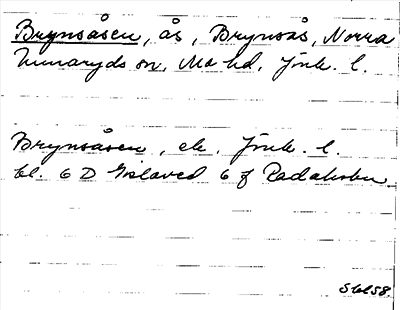 Brynsåsen, ås, Brynsås, Norra
Unnaryds sn, Mo hd, Jönk. l.
Brynsåsen, ek. Jönk. l.
bl. 6 D Gislaved 6 f Radaholm